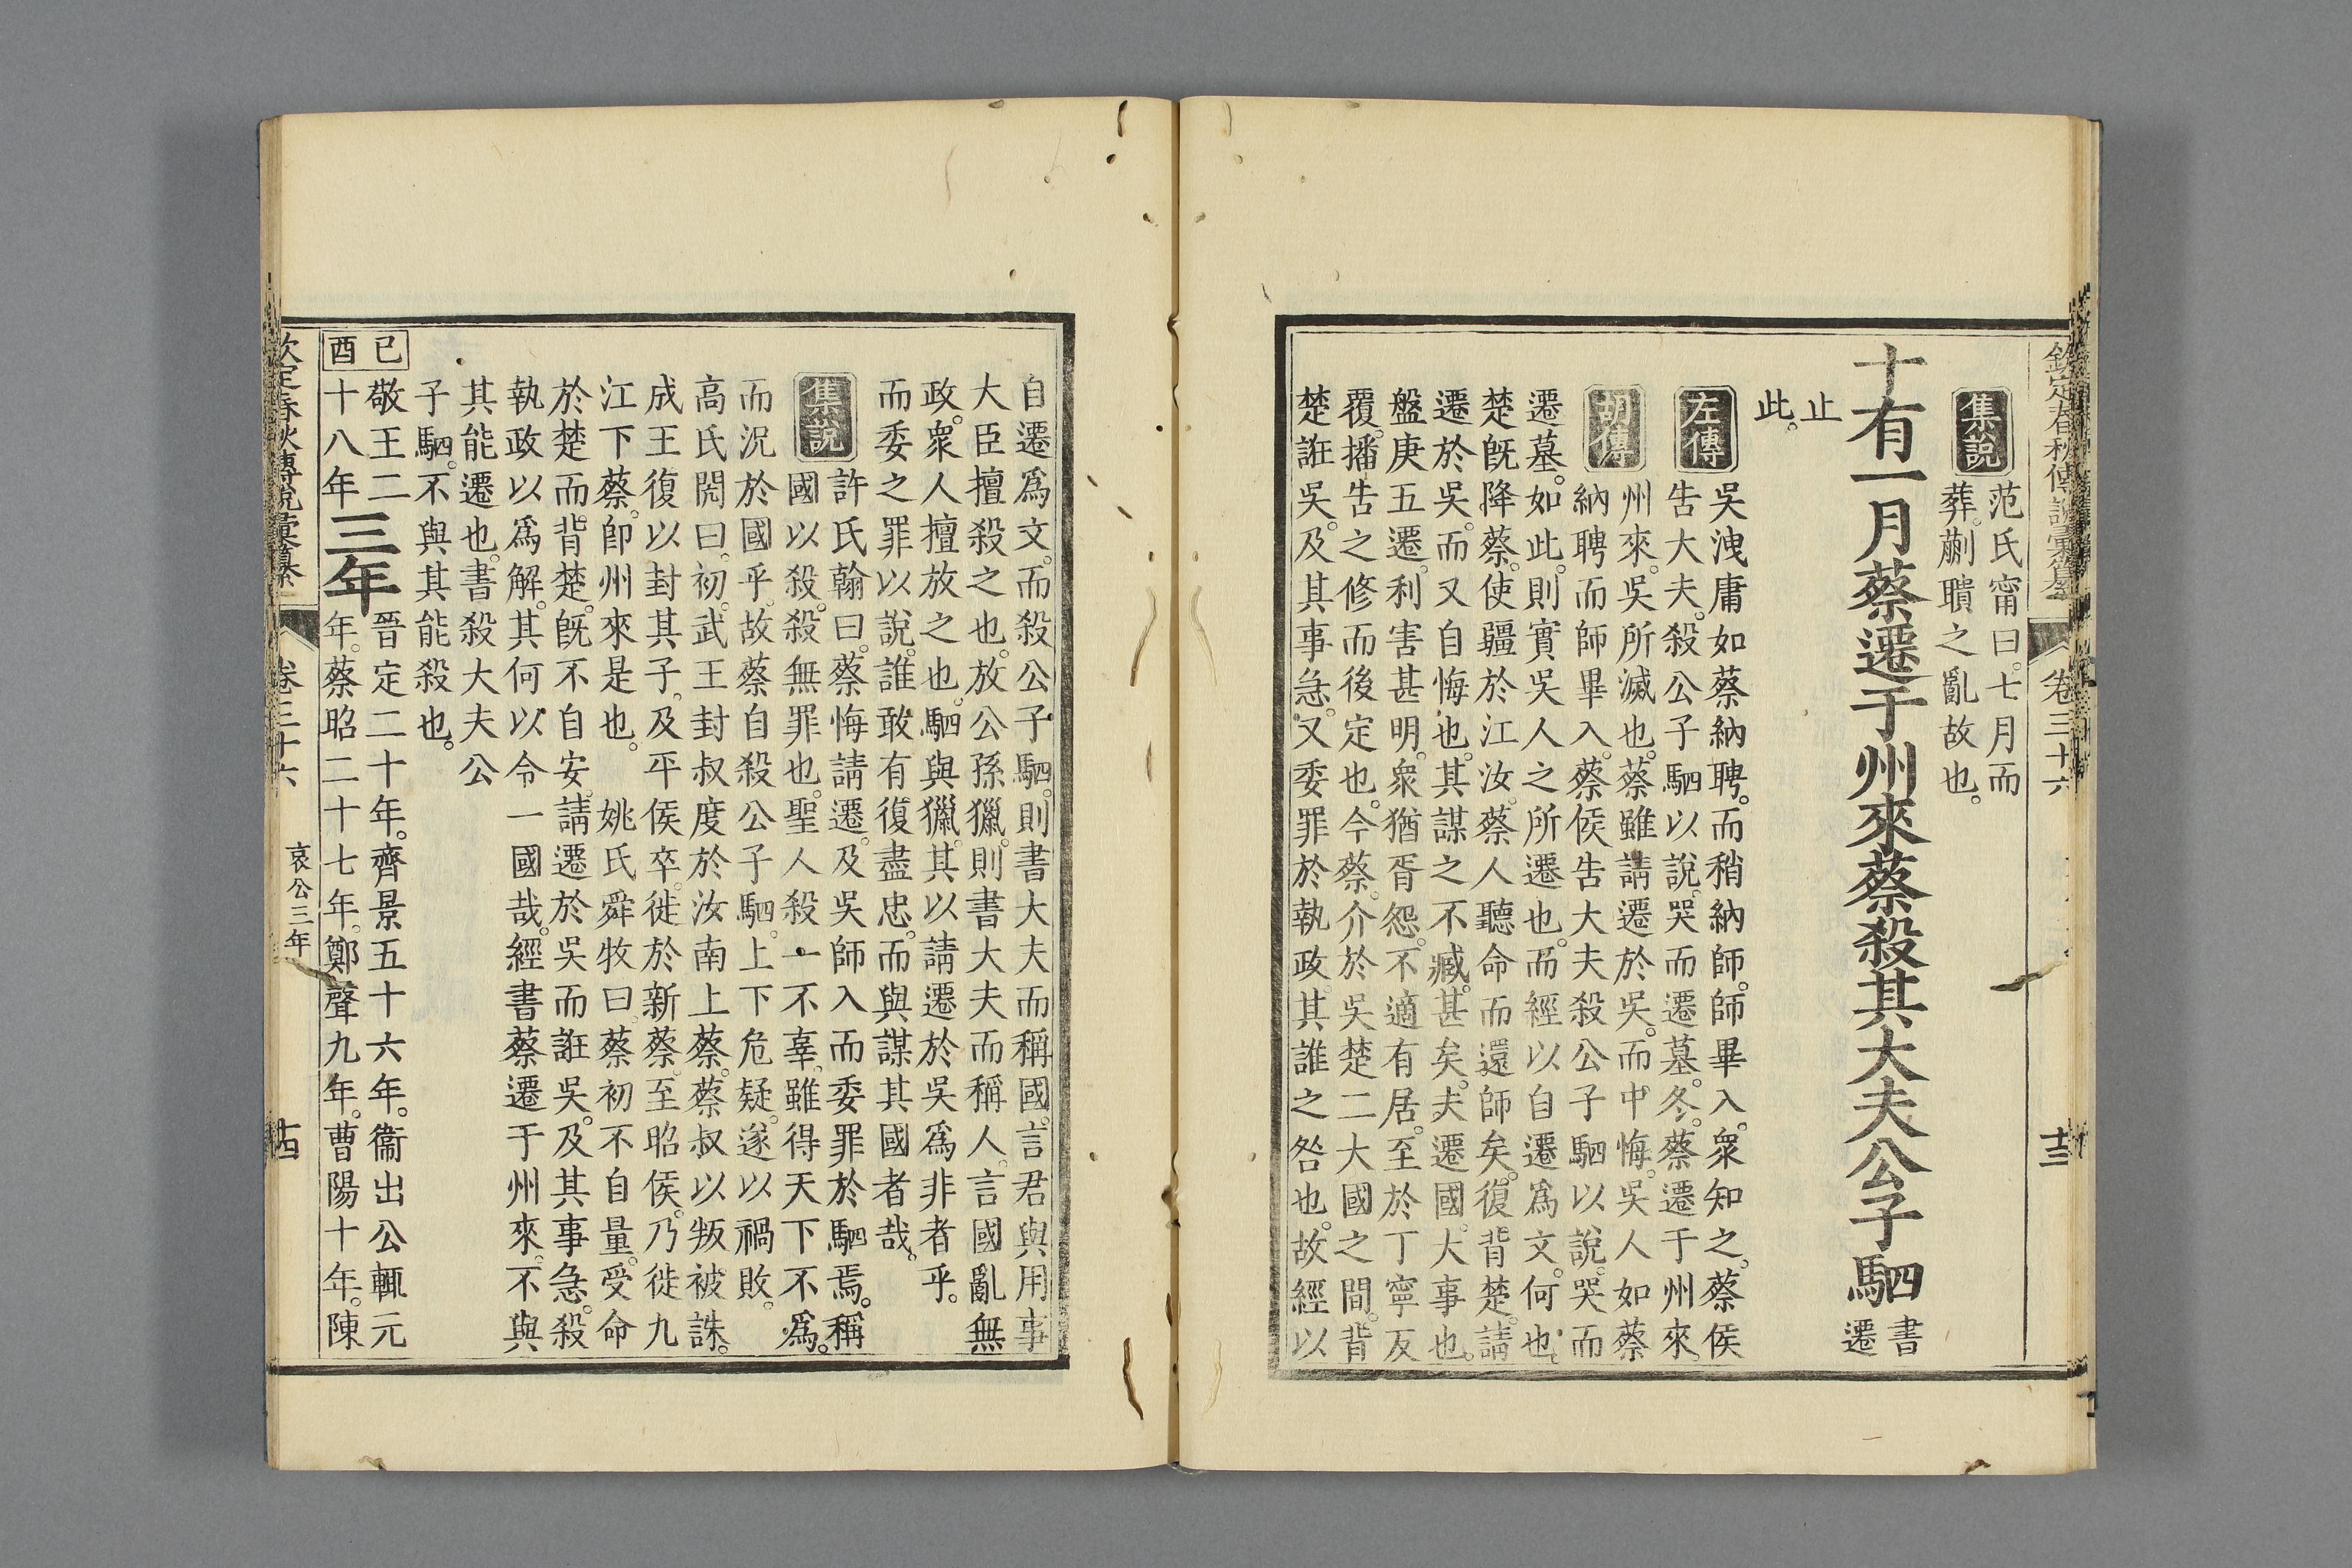 欽定春秋傳說彙纂 卷三十六 十三
集說
范氏甯曰。七月而
葬。蒯聵之亂故也。
十有一月蔡遷于州來蔡殺其大夫公子駟
書
遷
止
此。
左傳
吳洩庸如蔡納聘。而稍納師。師畢入。衆知之。蔡侯
告大夫。殺公子駟以說。哭而遷墓。冬。蔡遷于州來。
胡傳
州來。吳所滅也。蔡雖請遷於吳。而中悔。吳人如蔡
納聘而師畢入。蔡侯告大夫殺公子駟以說。哭而
遷墓。如此。則實吳人之所遷也。而經以自遷爲文。何也。
楚旣降蔡。使疆於江汝。蔡人聽命而還師矣。復背楚。請
遷於吳。而又自悔也。其謀之不臧。甚矣。夫遷國。大事也。
盤庚五遷。利害甚明。衆猶胥怨。不適有居。至於丁寧反
覆。播告之修而後定也。今蔡。介於吳楚二大國之間。背
楚誑吳。及其事急。又委罪於執政。其誰之咎也。故經以
自遷爲文。而殺公子駟。則書大夫而稱國。言君與用事
大臣擅殺之也。放公孫獵。則書大夫而稱人。言國亂無
政。衆人擅放之也。駟與獵。其以請遷於吳爲非者乎。
而委之罪以說。誰敢有復盡忠。而與謀其國者哉。
集說
許氏翰曰。蔡悔請遷。及吳師入而委罪於駟焉。稱
國以殺。殺無罪也。聖人殺一不辜。雖得天下不爲。
而況於國乎。故蔡自殺公子駟。上下危疑。遂以禍敗。
高氏閌曰。初。武王封叔度於汝南上蔡。蔡叔以叛被誅。
成王復以封其子。及平侯卒。徙於新蔡。至昭侯。乃徙九
江下蔡。卽州來是也。 姚氏舜牧曰。蔡初不自量。受命
於楚。而背楚。旣不自安。請遷於吳而誑吳。及其事急。殺
執政以爲解。其何以令一國哉。經書蔡遷于州來。不與
其能遷也。書殺大夫公
子駟。不與其能殺也。
己酉
敬王二十八年
三年
晉定二十年。齊景五十六年。衞出公輒元
年。蔡昭二十七年。鄭聲九年。曹陽十年。陳
欽定春秋傳說彙纂 卷三十六 哀公三年 十四